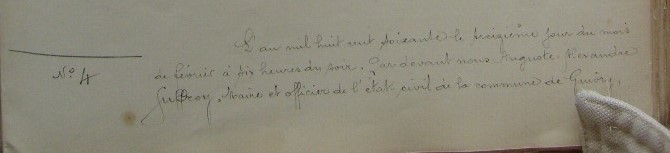 L'an mil huit cent soixante le troizième jour du mois
N° 4
de février à six heures du soir. Par devant nous Auguste Alexandre
Maire et officier de l'état civil de la commune de